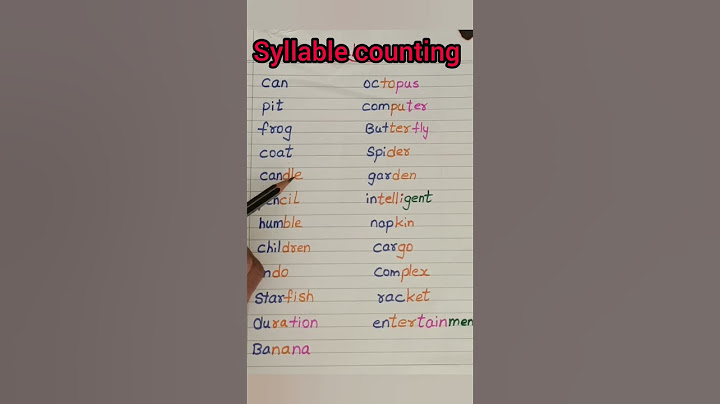 Syllable counting
can octopus
pit computer
frog Butterfly
coat Spider
candle garden
encil intelligent
humble napkin
children cargo
ndo complex
Starfish racket
duration entertainmen
Banana